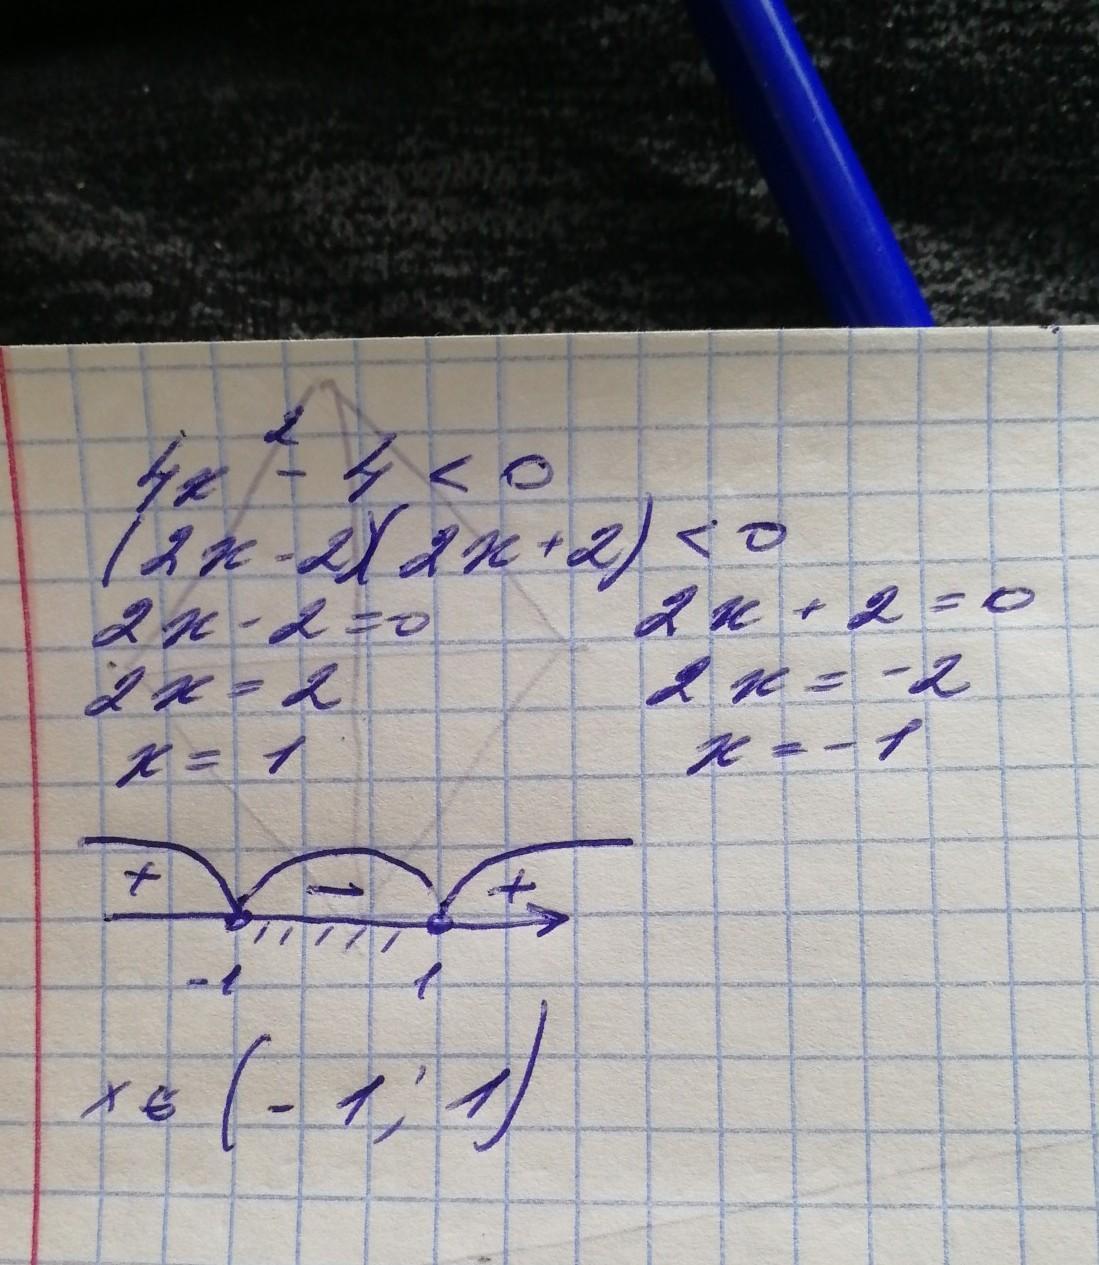 4x² - 4 < 0
(2x - 2)(2x + 2) < 0
2x - 2 = 0 2x + 2 = 0
2x = 2 2x = -2
x = 1 x = -1
+ - +
-1 1
x ∈ (-1; 1)